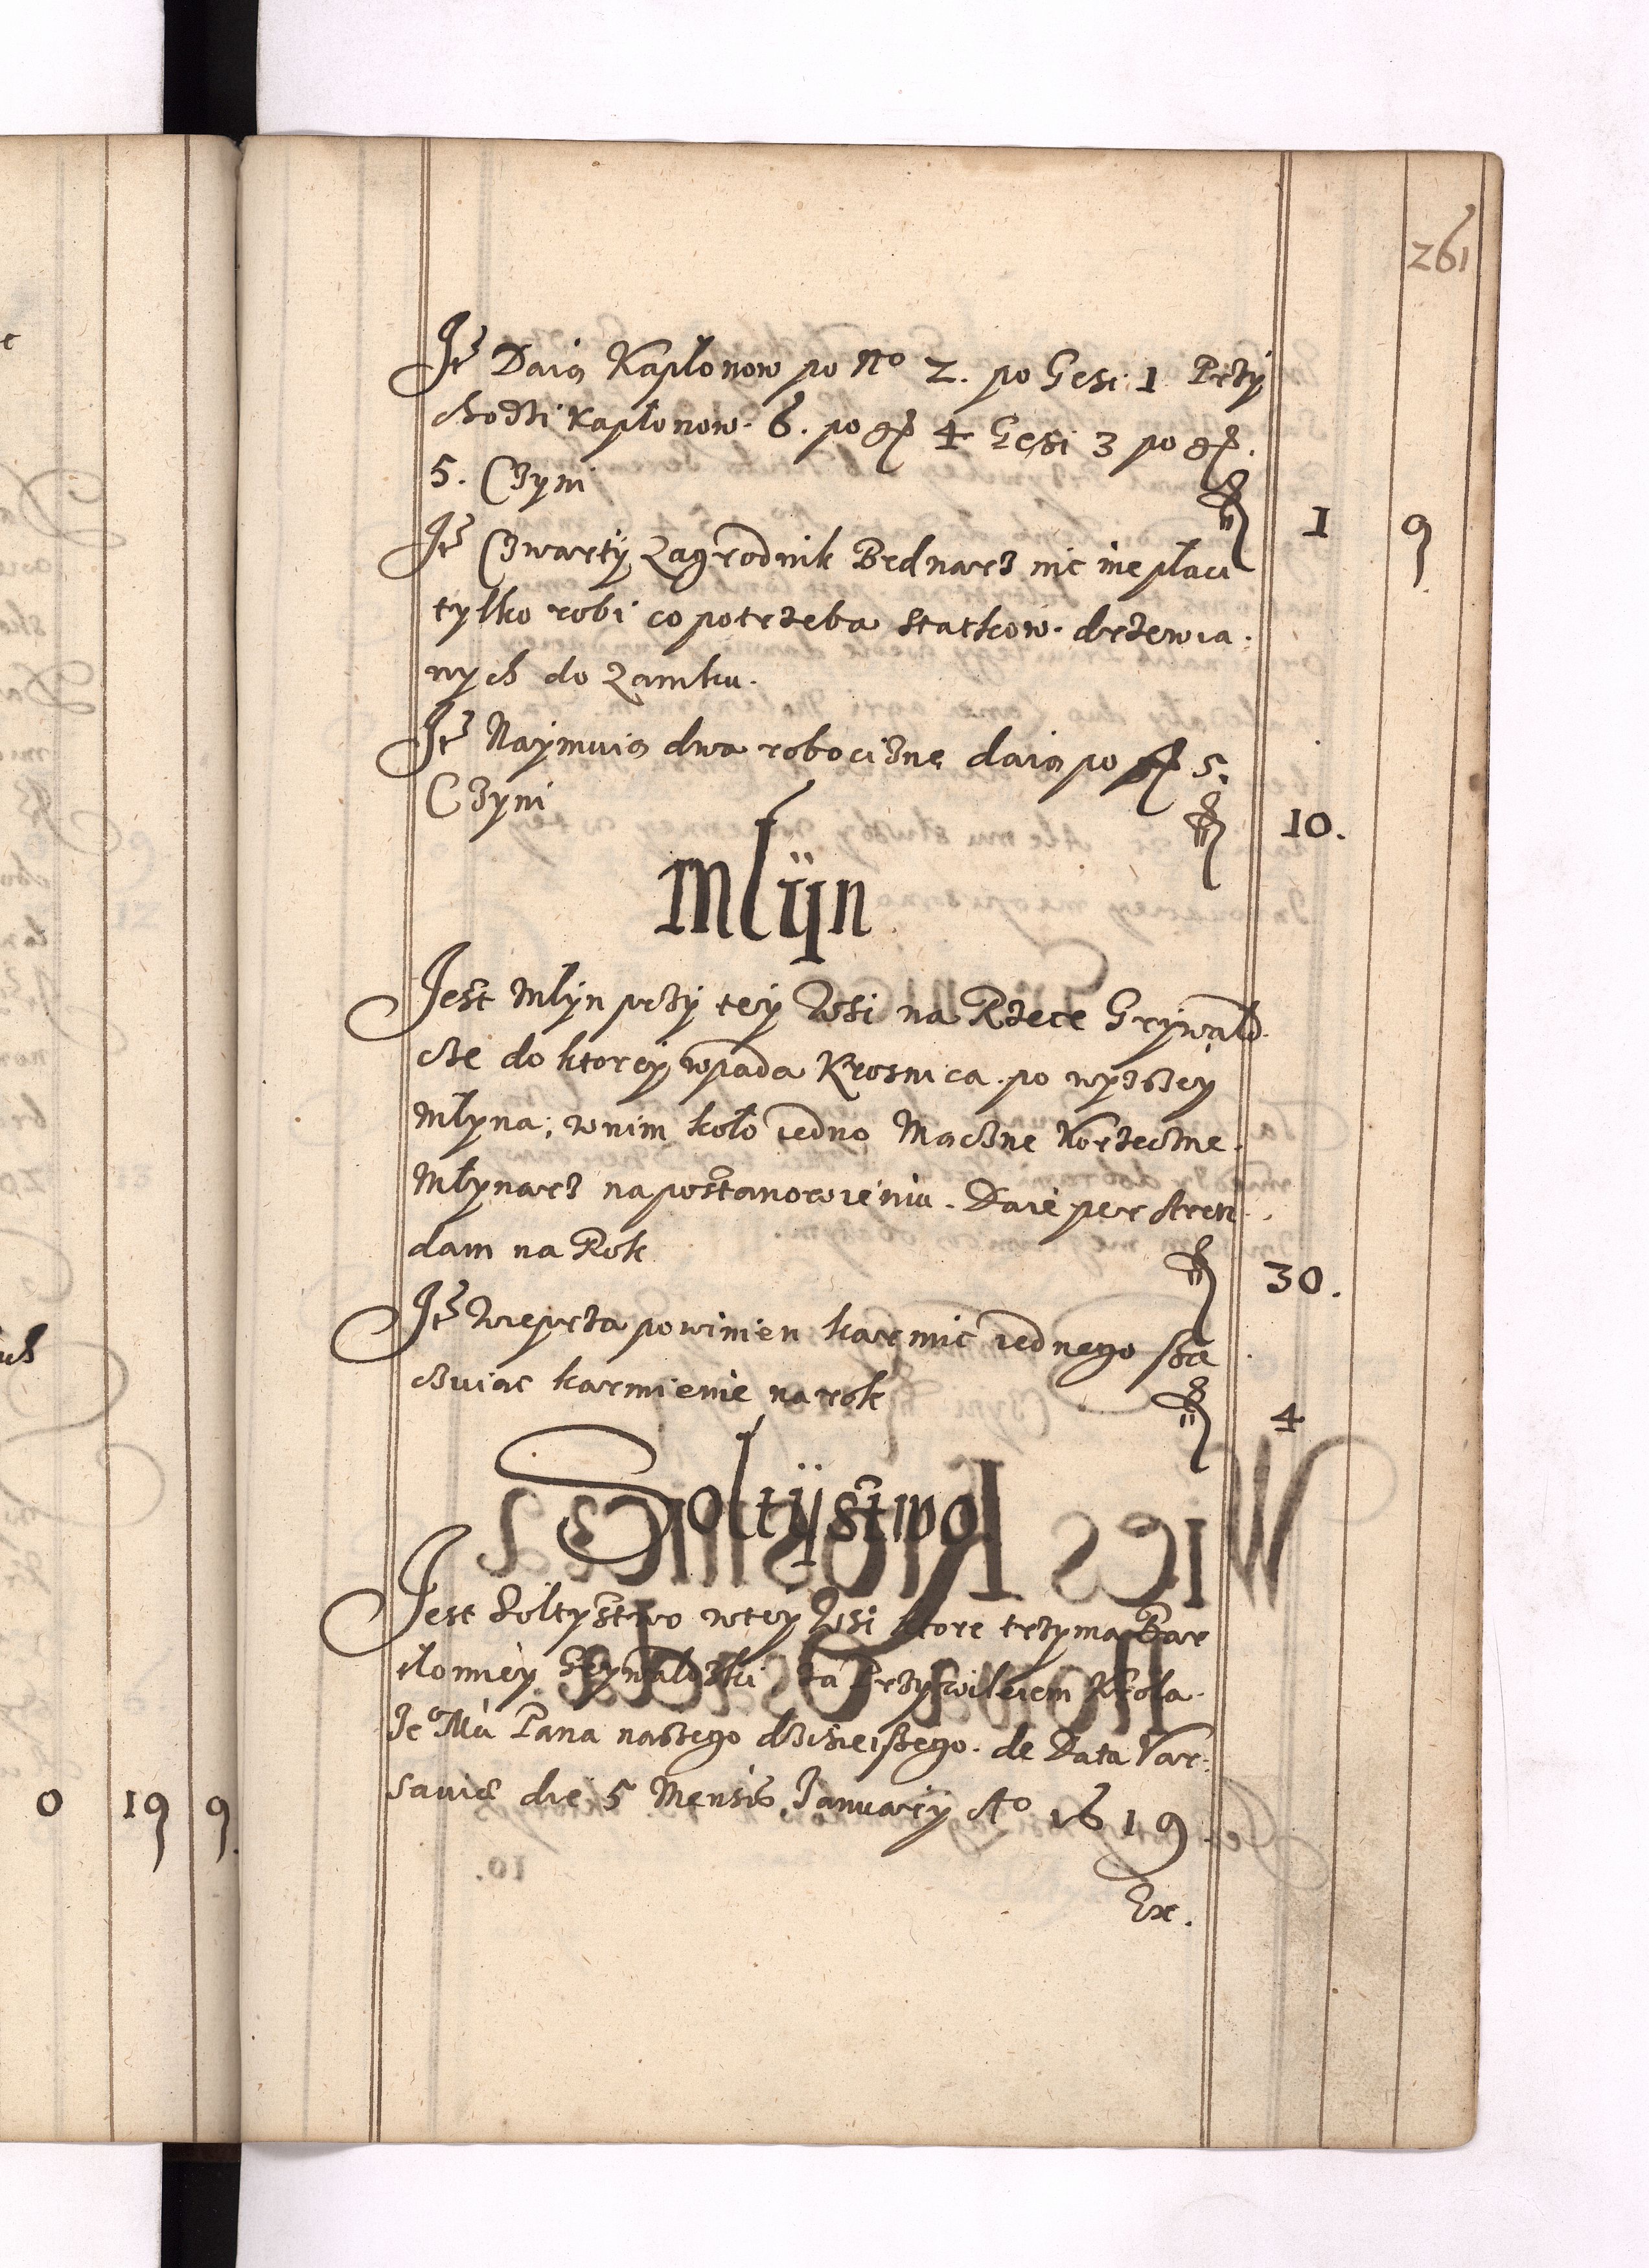 261
Itē Daią Kapłonow po No 2. po Gęsi 1 Przy
chodzi Kapłonow. 6. po gr 4 Gęsi 3 po gr.
5. Czyni fl 1 9
Itē Czwarty Zagrodnik Bednarz nic nie płaci
tylko robi co potrzeba statkow. drzewia:
nych do Zamku.
Itē Naymuią dwa robociznę daią po fl 5.
Czyni fl 10.
Młÿn
Jest Młyn przÿ teÿ Wsi na Rzece Grÿwałd
che do ktoreÿ wpada Krosnica. po wyższeÿ
Młyna; w nim koło iedno Mączne Korzeczne.
Młynarz na postanowieniu. Daie per Aren:
dam na Rok fl 30.
Itē Wieprza powinien karmic iednego sza
cuiąc karmienie na rok fl 4
Sołtÿstwo
Jest Sołtystwo w teÿ Wsi ktore trzyma Bar
tłomieÿ Grywaldzki, za Przywileiem Krola
Je° Mci Pana naszego dzisieiszego. de Data Var:
saviæ die 5 Mensis Januarÿ A° 1619
Ex.
0 19 9.